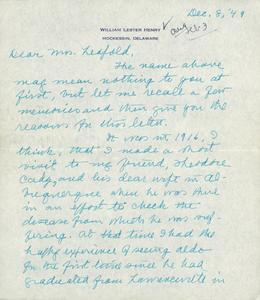 Dec. 8, '49
WILLIAM LESTER HENRY
HOCKESSIN, DELAWARE
Dear Mrs. Leopold,
The name above
may mean nothing to you at
first, but let me recall a few
memories and then give you the
reasons for this letter.
It was in 1916, I
think, that I made a short
visit to my friend, Theodore
and his dear wife in Al-
buquerque when he was there
in an effort to check the
disease from which he was suf-
fering. At that time I had the
happy experience of seeing Aldo
for the first time since he had
graduated from Lawrenceville in